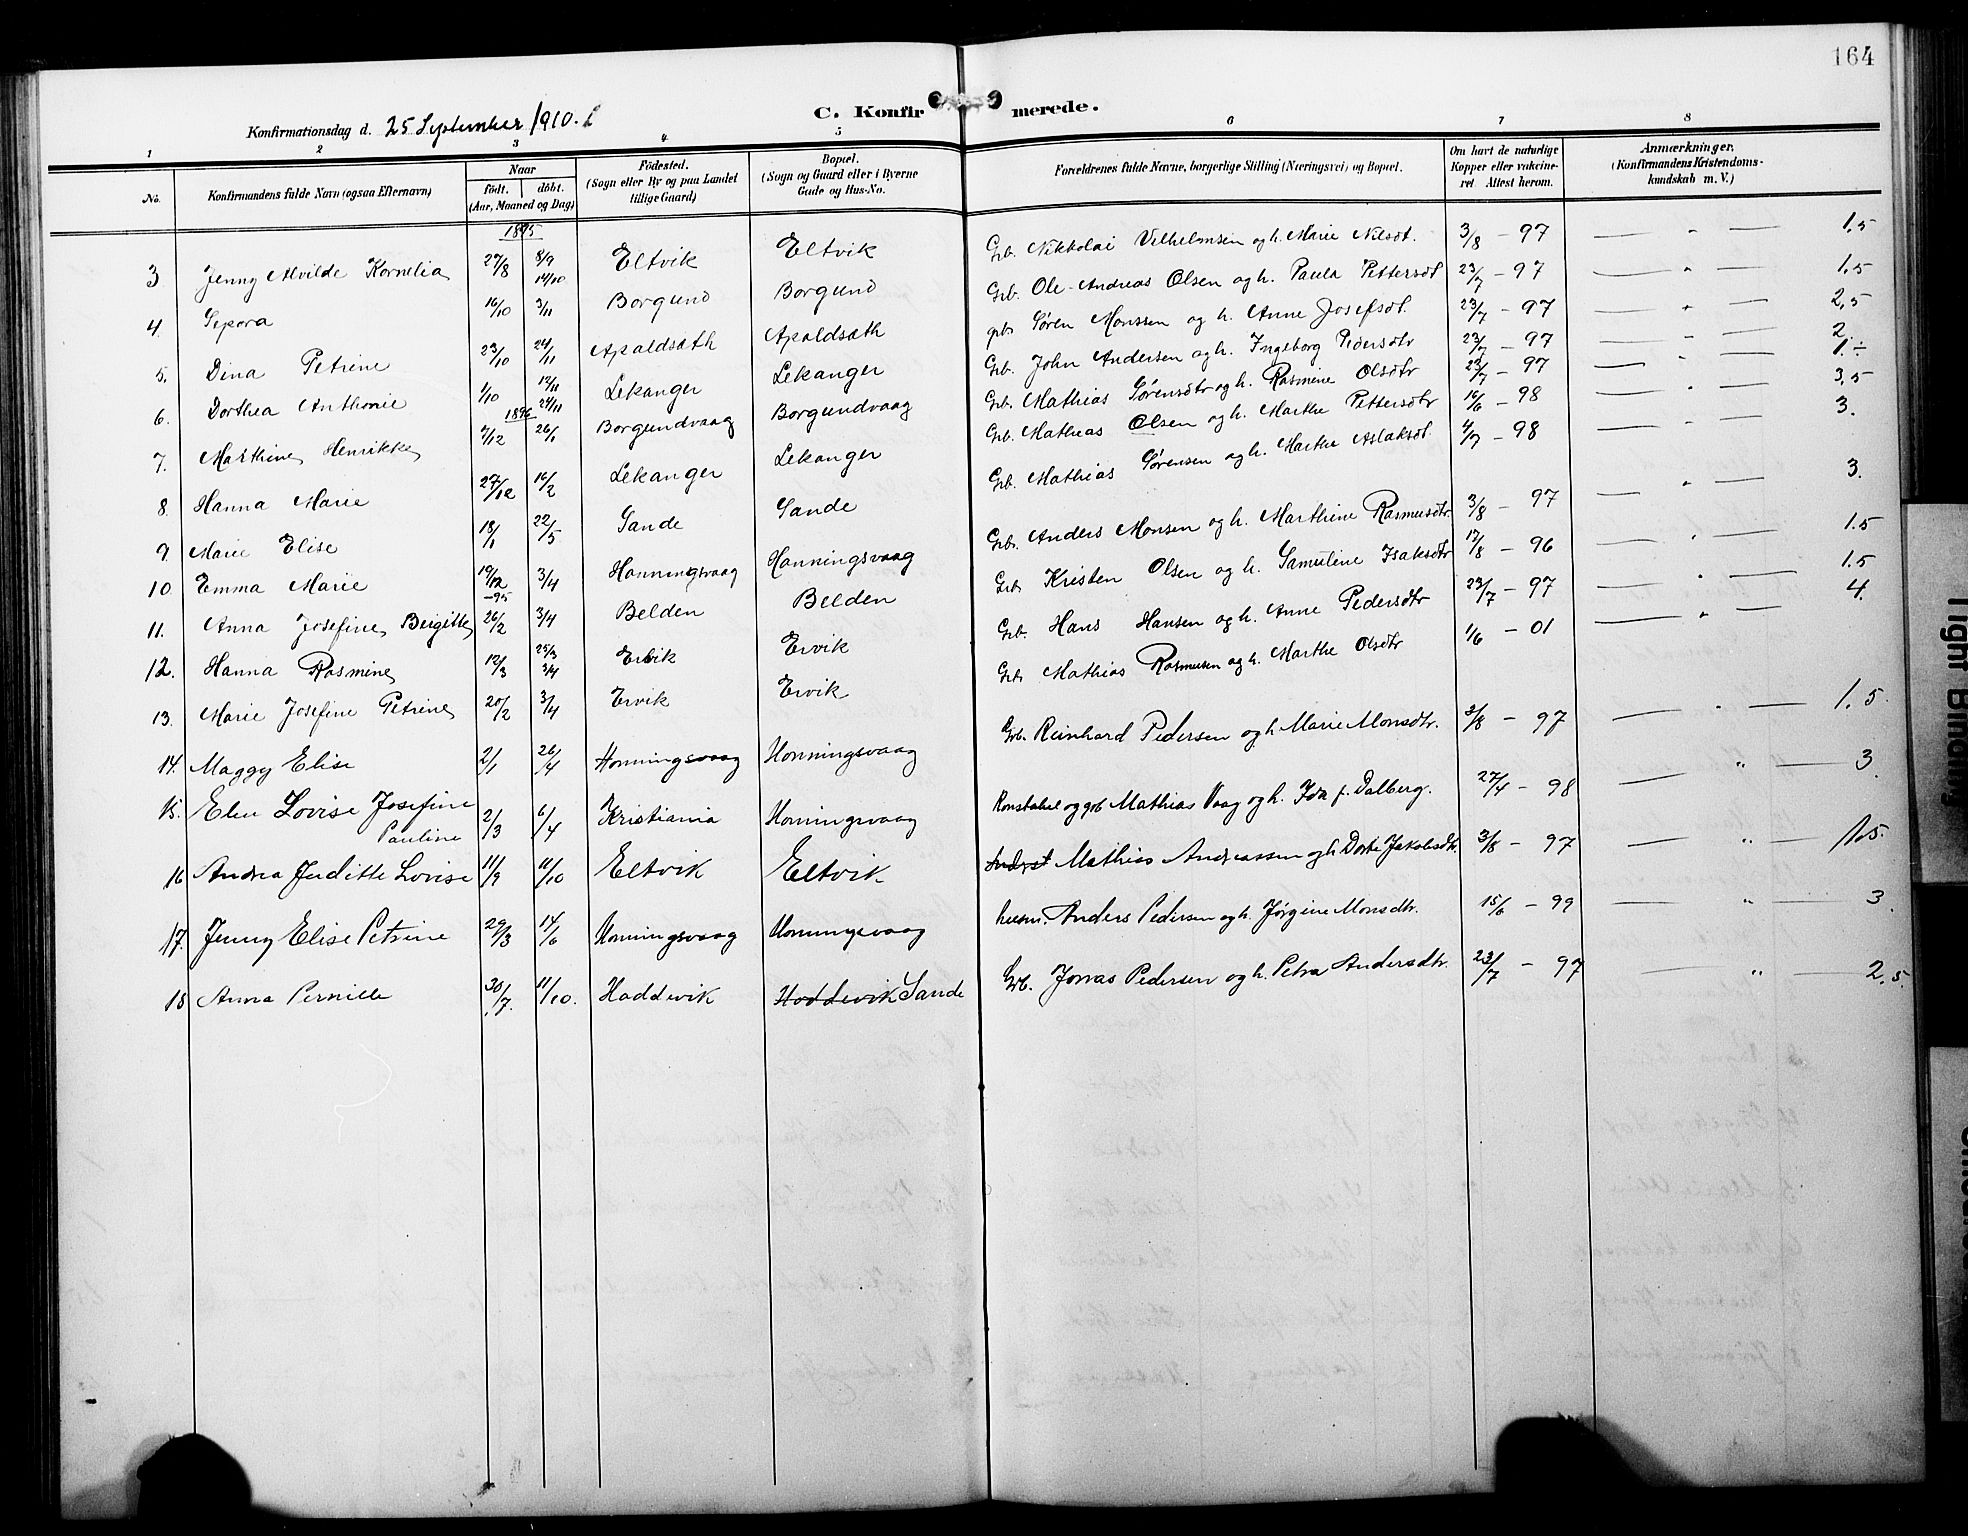 164
C. Konfirmerede.
Konfirmationsdag d. 25 September 1910.
1 2 3 4 5 6 7 8
No. Konfirmandens fulde Navn (ogsaa Efternavn) Naar født. døbt. (Aar, Maaned og Dag) Fødested. (Sogn eller By og paa Landet tillige Gaard) Bopæl. (Sogn og Gaard eller i Byerne Gade og Hus-No. Forældrenes fulde Navne, borgerlige Stilling (Næringsvei) og Bopæl. Om havt de naturlige Kopper eller vakcineret Attest herom. Anmærkninger, (Konfirmandens Kristendomskundskab m. V.)
1895
3 Jenny Alvilde Kornelia 27/8 8/9 Eltvik Eltvik Grb. Nikkolai Vilhelmsen og h. Marie Nilsdt. 3/8 - 97 — " — 1.5
4. Sepora 16/10 14/10 3/11 Borgund Borgund Grb. Ole Andreas Olsen og h. Paula Pettersdt 23/7 - 97 — " — 1.5
5. Dina Petrine 23/10 24/11 Apaldsæth Apaldsæth grb. Søren Monssen og h. Anne Josefsdt. 23/7 - 97 — " — 2,5
6. Dorthea Anthonie 1/10 17/11 24/11 Lekanger Lekanger Grb. John Andersen og h. Ingeborg Pedersdtr 23/7 - 97 — " — 2.
1896
7. Marthine Henrikke 7/12 26/1 Borgundvaag Borgundvaag Grb. Mathias Sørensdtr og h. Rasmine Olsdtr 23/7 - 97 — " — 1.÷
8. Hanna Marie 27/12 16/2 Lekanger Lekanger Grb. Mathias Olsen og h. Marthe Pettersdtr 16/6 - 98 — " — 3,5
9 Marie Elise 18/1 22/5 Sande Sande Grb. Mathias Sørensen og h. Marthe Aslaksdt. 4/7 - 98 — " — 3.
10. Emma Marie 19/12 -95 3/4 Honningsvaag Honningsvaag Grb. Anders Monsen og h. Marthine Rasmusdtr. 3/8 - 97 — " — 3.
11. Anna Josefine Bergitte 26/2 3/4 Belden Belden Grb Kristen Olsen og h. Samueline Isaksdtr 17/8 - 96 — " — 1.5
12. Hanna Rasmine 12/3 25/3 3/4 Ervik Ervik Grb. Hans Hansen og h. Anne Pedersdtr 23/7 - 97 — " — 1.5
13. Marie Josefine Petrine 20/2 3/4 Ervik Ervik Grb Mathias Rasmusen og h. Marthe Olsdtr 1/6 - 01 — " — 4.
14. Maggy Elise 2/1 26/4 Honningsvaag Honningsvaag Grb. Reinhard Pedersen og h Marie Monsdtr. 3/8 - 97 — " — 1.5.
15. Elen Lovise Josefine Pauline 2/3 6/4 Kristiania Honningsvaag Konstabel og grb Mathias Vaag og h. Ida f. Dalberg. 27/4 - 98 — " — 3.
16 Andrea Juditte Lovise 11/9 11/10 Eltvik Eltvik Mathias Andreassen og h Dorte Jakobsdtr. 3/8 - 97 — " — 1.5.
17. Jenny Elise Petrine 29/3 14/6 Honningsvaag Honningsvaag husm. Anders Pedersen og h. Jørgine Monsdtr. 15/6 - 99 — " — 3.
18 Anna Pernille 30/7. 11/10. Haddevik Hoddevik Sande Grb. Jonas Pedersen og h. Petra Andersdtr. 23/7 - 97 — " — 2.5.
Tight Binding